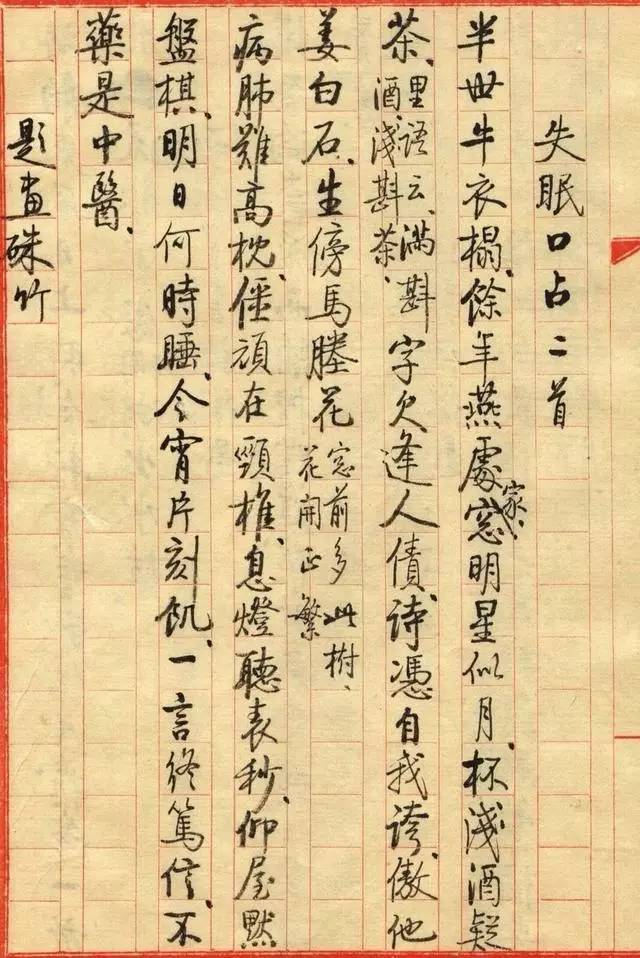 失眠口占二首
半世牛衣榻、餘年燕處家、窓明星似月、杯淺酒疑
茶、里語云、滿斟酒、淺斟茶、字欠逢人債、詩憑自我誇、傲他
姜白石、生傍馬塍花、窓前多此樹、花開正繁
病肺難高枕、僵頑在頸椎、息燈聽表秒、仰屋默
盤棋、明日何時睡、今宵片刻飢、一言終篤信、不
藥是中醫、
題畫硃竹